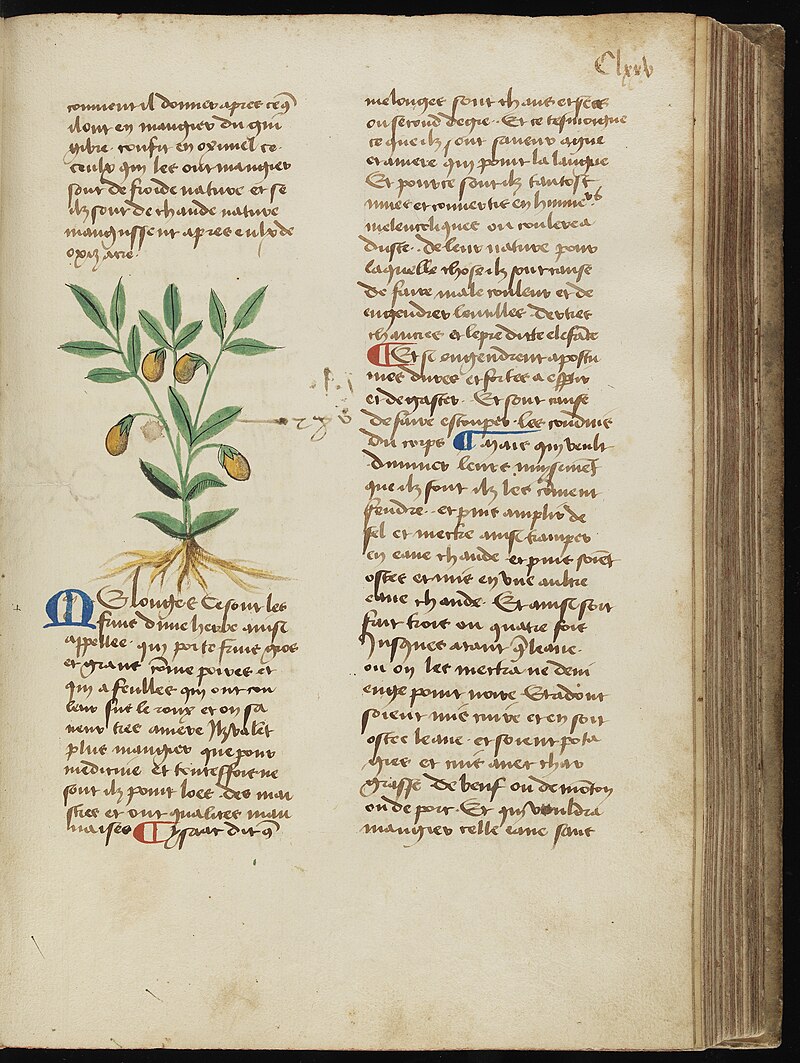 Clxxv
comment il donner apres ce q̄
ilont en mangier du gin
gibre confit en oximel ce
ceulx qui les ont mangier
sont de froide nature et se
ilz sont de chaude nature
mangussent apres eulx de
oxizacre
Melonges Ce sont les
fruis dune herbe ainsi
appellee qui porte fruis gros
et grans cōme poires et
qui a feulles qui ont cou
leur sus le roux et on sa
neur tres amere Ilz valēt
plus mangier que pour
medicine et toutesfois ne
sont ilz point loes des mai
stres et ont qualites mau
uaises ¶ ysaac dit q̄
melonges sont chaus et secs
ou second degre Et ce tesmoigne
ce que ilz sont saueur ague
et amere qui point la langue
Et pource sont ilz tantost
mues et conuertis en humeᵘʳˢ
melencoliques ou colere a
duste de leur nature pour
laquelle chose ilz sont cause
de faire male couleur et de
engendrer lentilles derties
chancres et lepre dicte elefāce
¶ Et se engendrent apostu
mes dures et fortes a
et degaster Et sont cause
de faire estouper les conduis
du corps ¶ Mais qui veult
dimmer leurs nuysimēt
que ilz font ilz les cōuient
fendre et puis amplir de
sel et mectre ainsi tremper
en eaue chaude et puis soiēt
ostes et mis en vne aultre
eaue chaude Et ainsi soit
fait trois ou quatre fois
Jusques atant q̄ leaue
ou on les mectra ne deui
engne point noire Et adōt
soient mis cuire et en soit
ostee leaue et soient pota
gies et cuis auec char
grasse de beuf ou de mōton
ou de porc Et qui vouldra
mangier celle eaue sans